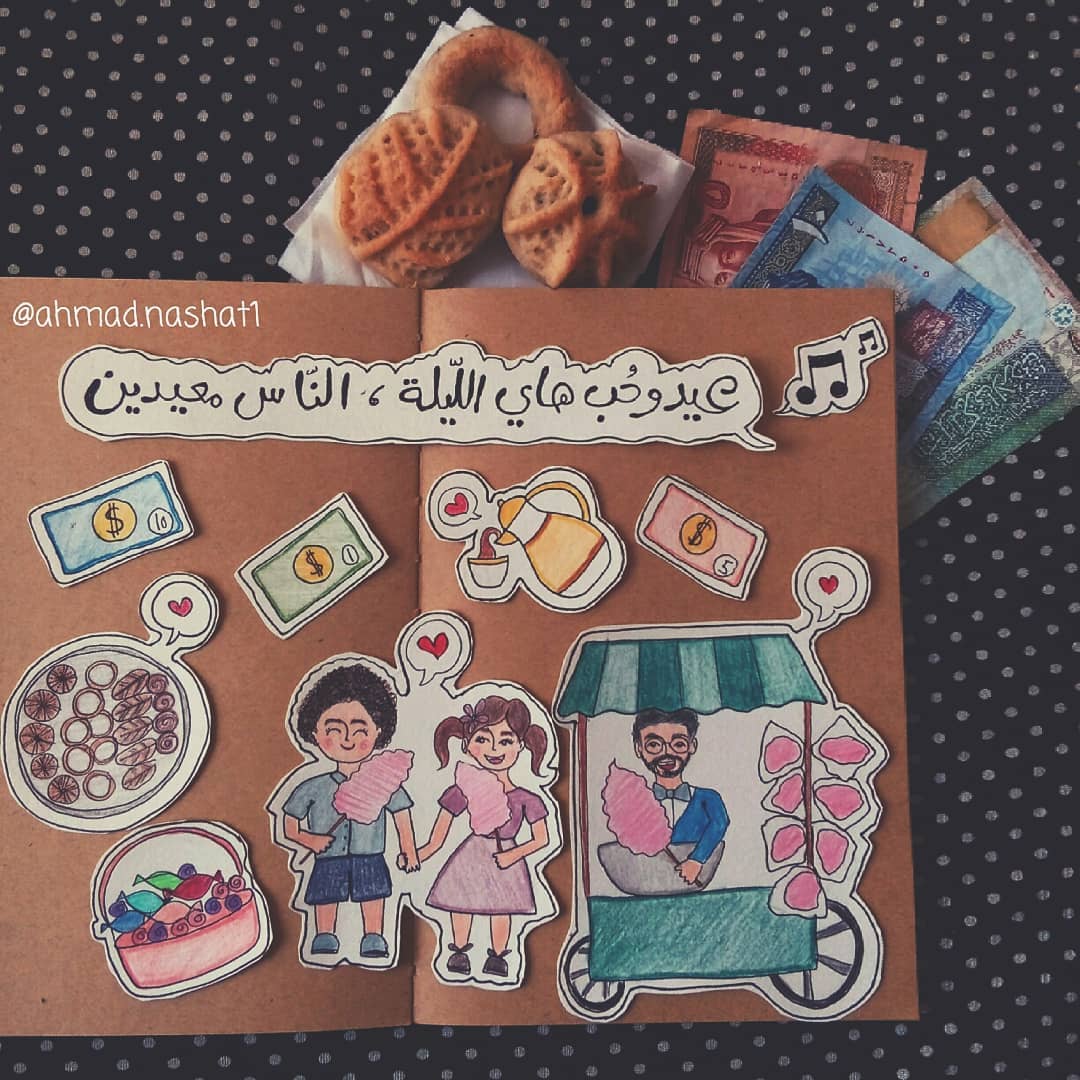 @ahmad.nashat1
عيد وحُب هاي اللّيلة ، النّاس معيدين
$ 10
$ 1
$ 5